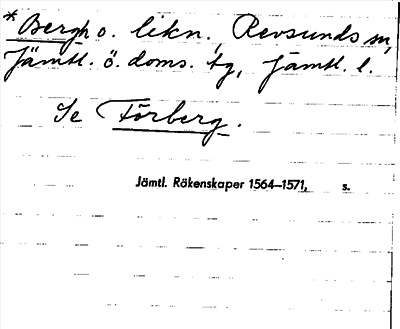 * Bergh o. likn., Revsunds sn,
Jämtl. ö. doms. tg, Jämtl. l.
Se Förberg.
Jämtl. Räkenskaper 1564–1571, s.